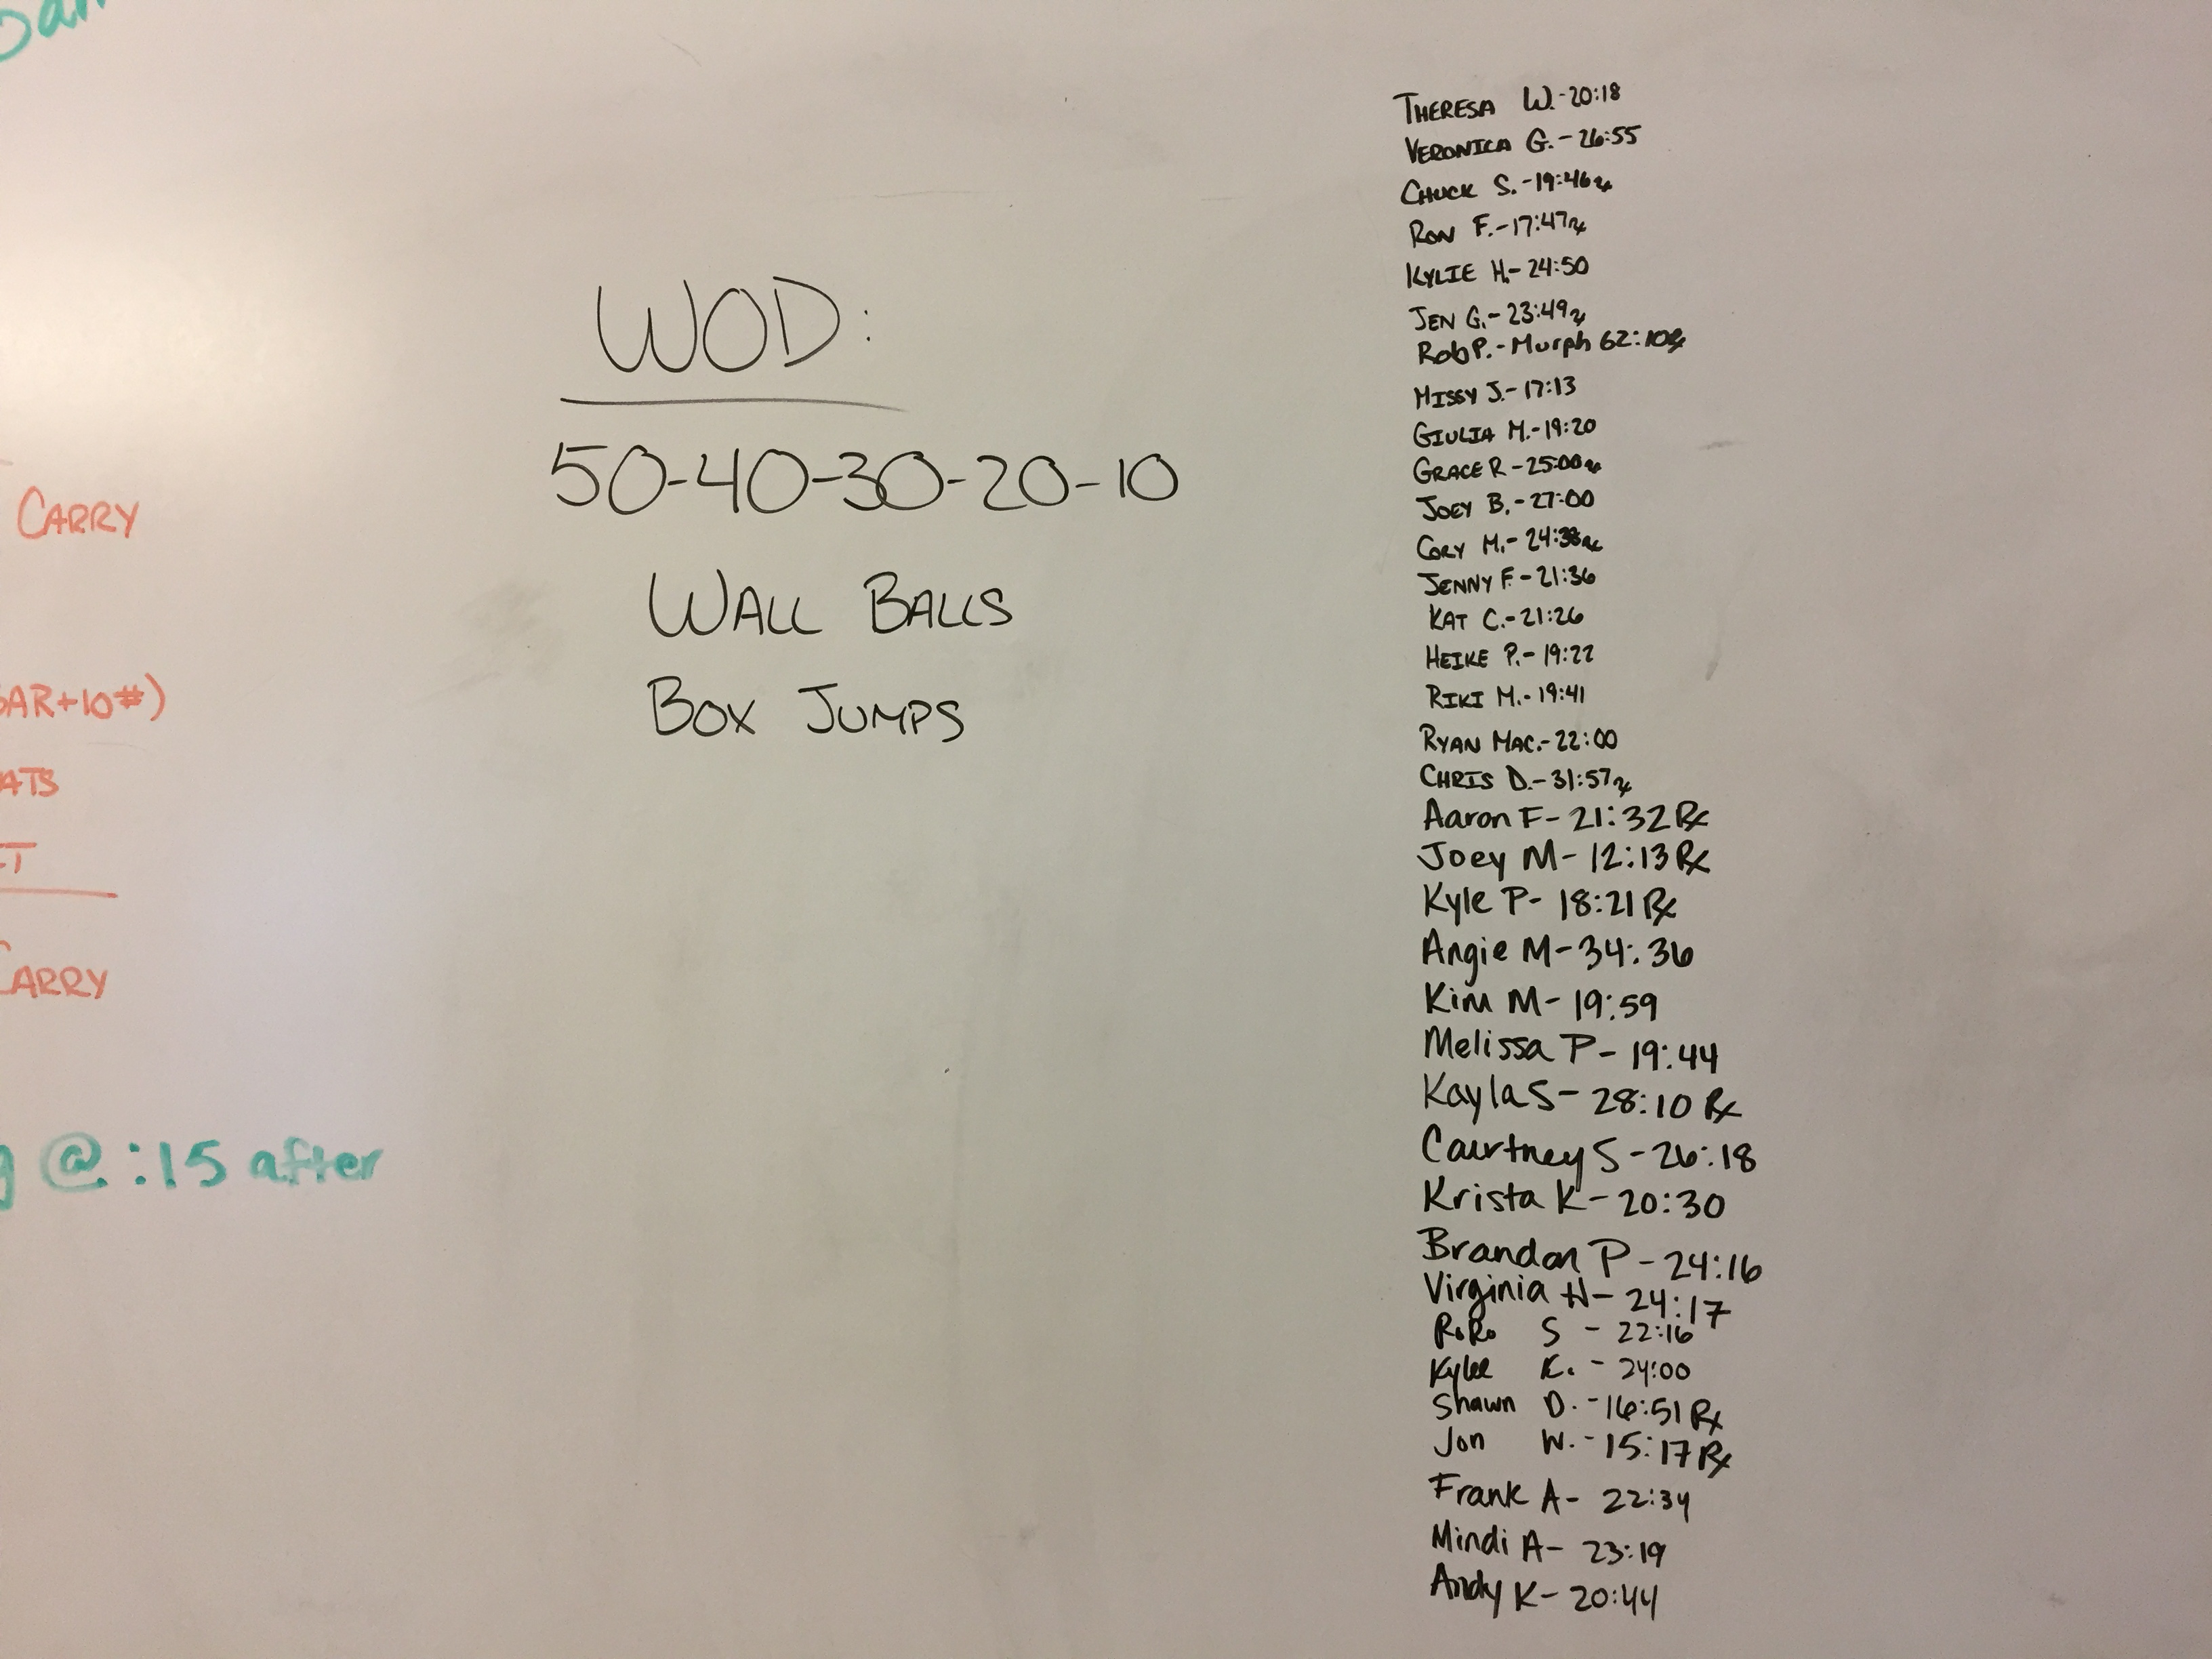 CARRY
BAR+10#)
ATS
CARRY
@ :15 after
WOD:
50-40-30-20-10
WALL BALLS
BOX JUMPS
THERESA W.-20:18
VERONICA G.-26:55
CHUCK S.-19:46 Rx
RON F.-17:47 Rx
KYLIE H.-24:50
JEN G.-23:49 Rx
Rob P.-Murph 62:10 Rx
MISSY J.-17:13
GIULIA M.-19:20
GRACE R-25:00 Rx
JOEY B.-27:00
CORY M.-24:38 Rx
JENNY F-21:36
KAT C.-21:26
HEIKE P.-19:22
RIKI M.-19:41
RYAN MAC.-22:00
CHRIS D.-31:57 Rx
Aaron F-21:32 Rx
Joey M-12:13 Rx
Kyle P-18:21 Rx
Angie M-34:36
Kim M-19:59
Melissa P-19:44
Kayla S-28:10 Rx
Courtney S-26:18
Krista K-20:30
Brandon P-24:16
Virginia H-24:17
RoRo S-22:16
Kylee K.-24:00
Shawn D.-16:51 Rx
Jon W.-15:17 Rx
Frank A-22:34
Mindi A-23:19
Andy K-20:44